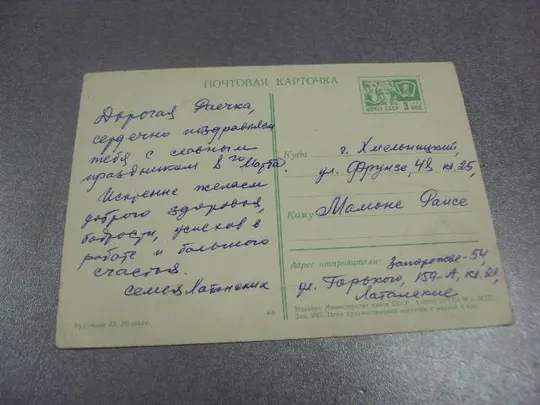 ПОЧТОВАЯ КАРТОЧКА
ПОЧТА СССР 3 КОП
Дорогая Раечка,
сердечно поздравляем
тебя с славным
праздником 8го Марта.
Искренне желаем
доброго здоровья,
бодрости, успехов в
работе и большого
счастья.
семья
Художник Ю.
Куда г. Хмельницкий,
ул. Фрунзе, 48, кв. 25,
Кому Мамоне Раисе
Адрес отправителя: Запорожье-54,
ул. Горького, 159-А, кв. 21,
Издание Министерства связи СССР.